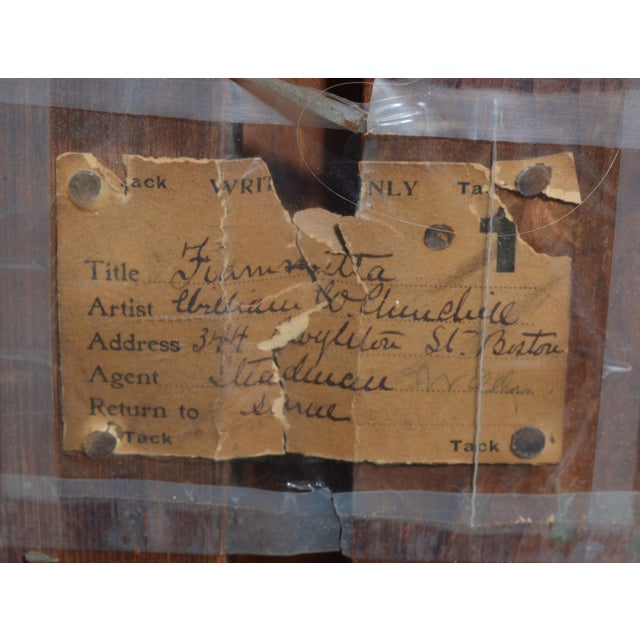 Tack WRIT NLY Ta
1
Title Fiammetta
Artist William W. Churchill
Address 344 Boylston St. Boston
Agent Steadman
Return to Same
Tack Tack